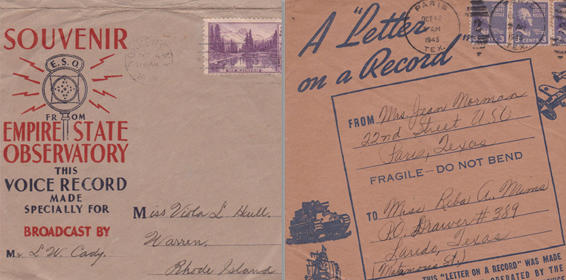 SOUVENIR
E.S.O.
FROM
EMPIRE STATE
OBSERVATORY
THIS
VOICE RECORD
MADE
SPECIALLY FOR
BROADCAST BY
Mr. L. W. Cady.
Miss Viola L Hull.
Warren,
Rhode Island
PARIS
OCT
AM
1943
TEX.
A "Letter
on a Record
FROM Mrs. Jean Morman
22nd Street USO
Paris, Texas
FRAGILE — DO NOT BEND
TO Miss Reba A. Mims
P.O. Drawer # 389
Laredo, Texas
(Matamoros St.)
THIS "LETTER ON A RECORD" WAS MADE
OPERATED BY THE